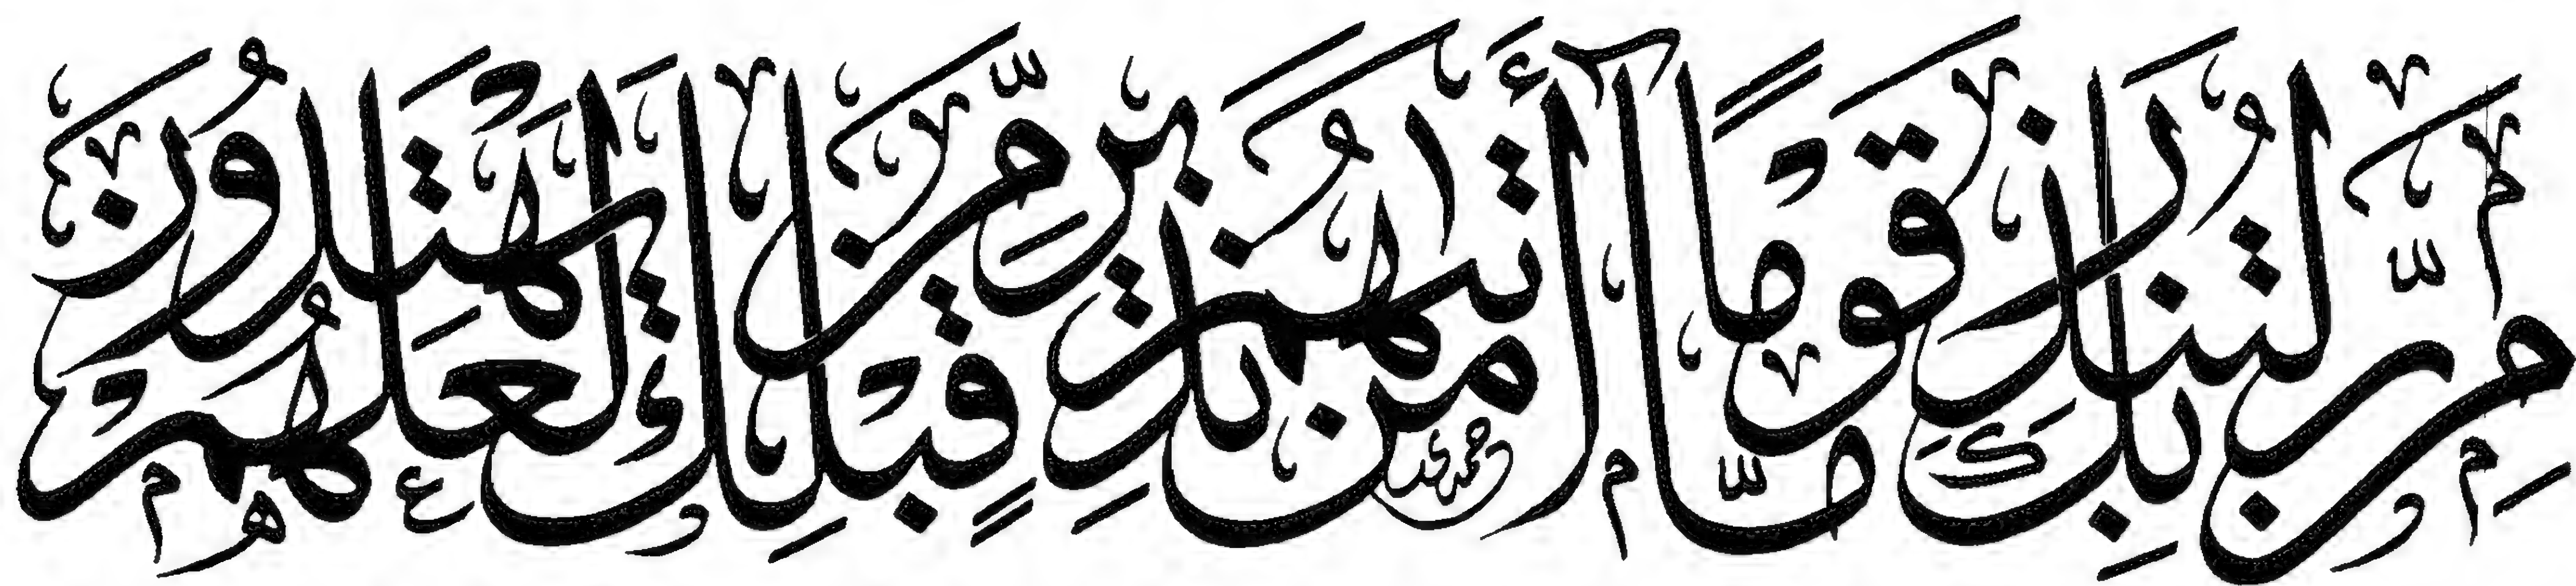 مِنْ رَّبِّكَ لِتُنْذِرَ قَوْمًا مَّا أَتَاهُمْ مِنْ نَذِيرٍ مِّنْ قَبْلِكَ لَعَلَّهُمْ يَهْتَدُونَ